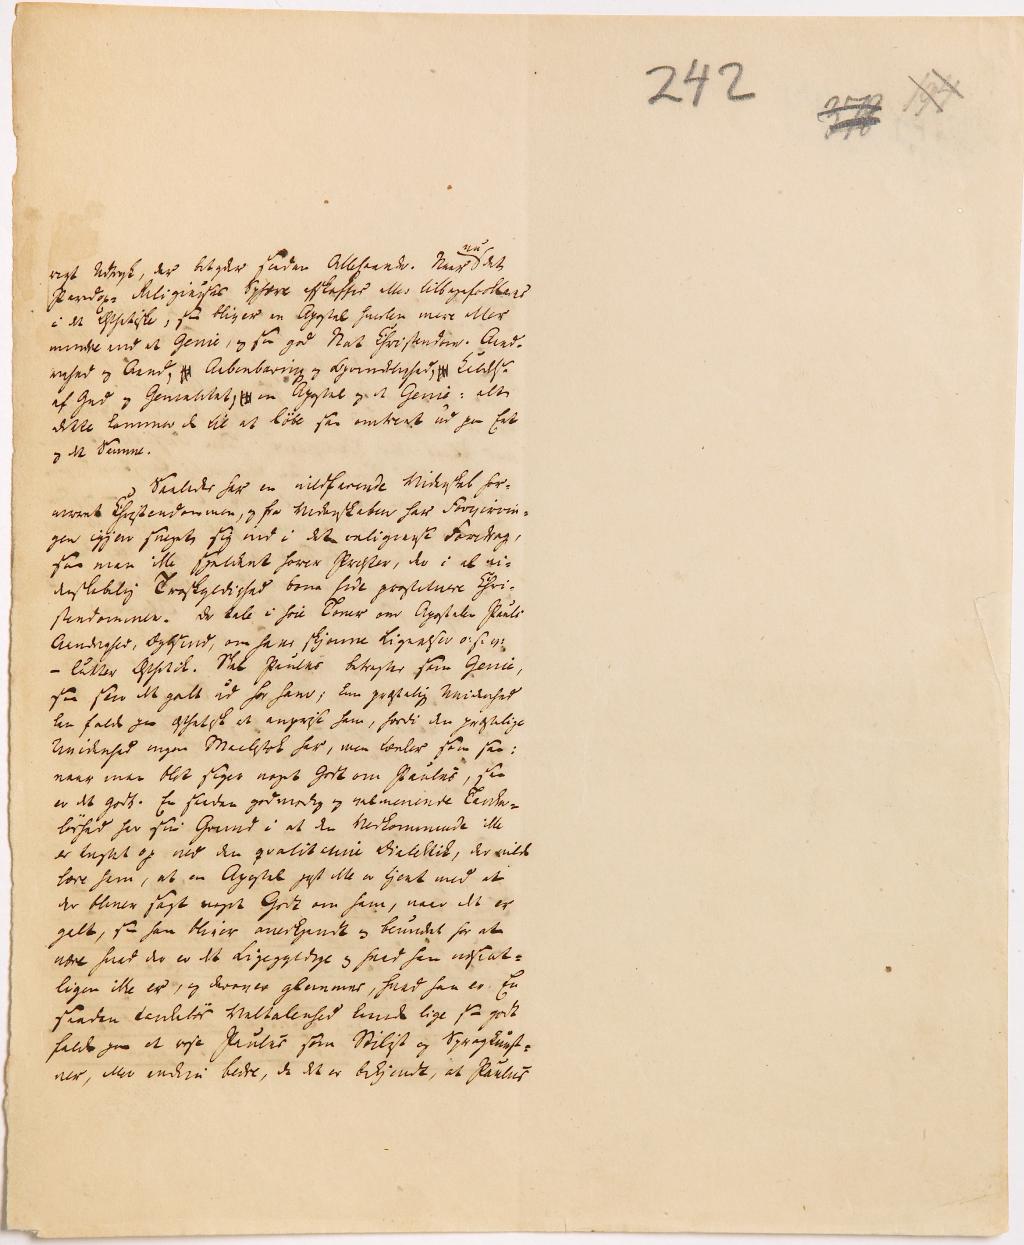 242
rigt Udtryk, der betyder saadan Allehaande. Naar nu det
Paradox-Religieuses Sphære afskaffes eller tilbageforklares
i det Æsthetiske, saa bliver en Apostel hverken mere eller
mindre end et Genie, og saa god Nat Christendom. Aand-
righed og Aand, Aabenbaring og Oprindelighed, Kaldelse
af Gud og Genialitet, en Apostel og et Genie: alt
dette kommer da til at løbe saa omtrent ud paa Eet
og det Samme.
Saaledes har en vildfarende Videnskab for-
virret Christendommen, og fra Videnskaben har Forvirrin-
gen igjen sneget sig ind i det religieuse Foredrag,
saa man ikke sjeldent hører Præster, der i al vi-
denskabelig Troskyldighed bona fide prostituere Chri-
stendommen. De tale i høie Toner om Apostelen Pauli
Aandrighed, Dybsind, om hans skjønne Lignelser o: s: v:
– lutter Æsthetik. Skal Paulus betragtes som Genie,
saa seer det galt ud for ham; kun præstelig Uvidenhed
kan falde paa æsthetisk at anprise ham, fordi den præstelige
Uvidenhed ingen Maalestok har, men tænker som saa:
naar man blot siger noget Godt om Paulus, saa
er det godt. En saadan godmodig og velmenende Tanke-
løshed har sin Grund i at den Vedkommende ikke
er tugtet op ved den qvalitative Dialektik, der vilde
lære ham, at en Apostel just ikke er tjent med at
der bliver sagt noget Godt om ham, naar det er
galt, saa han bliver anerkjendt og beundret for at
være hvad der er det Ligegyldige og hvad han væsent-
ligen ikke er, og derover glemmes, hvad han er. En
saadan tankeløs Veltalenhed kunde lige saa godt
falde paa at prise Paulus som Stilist og Sprogkunst-
ner, eller endnu bedre, da det er bekjendt, at Paulus